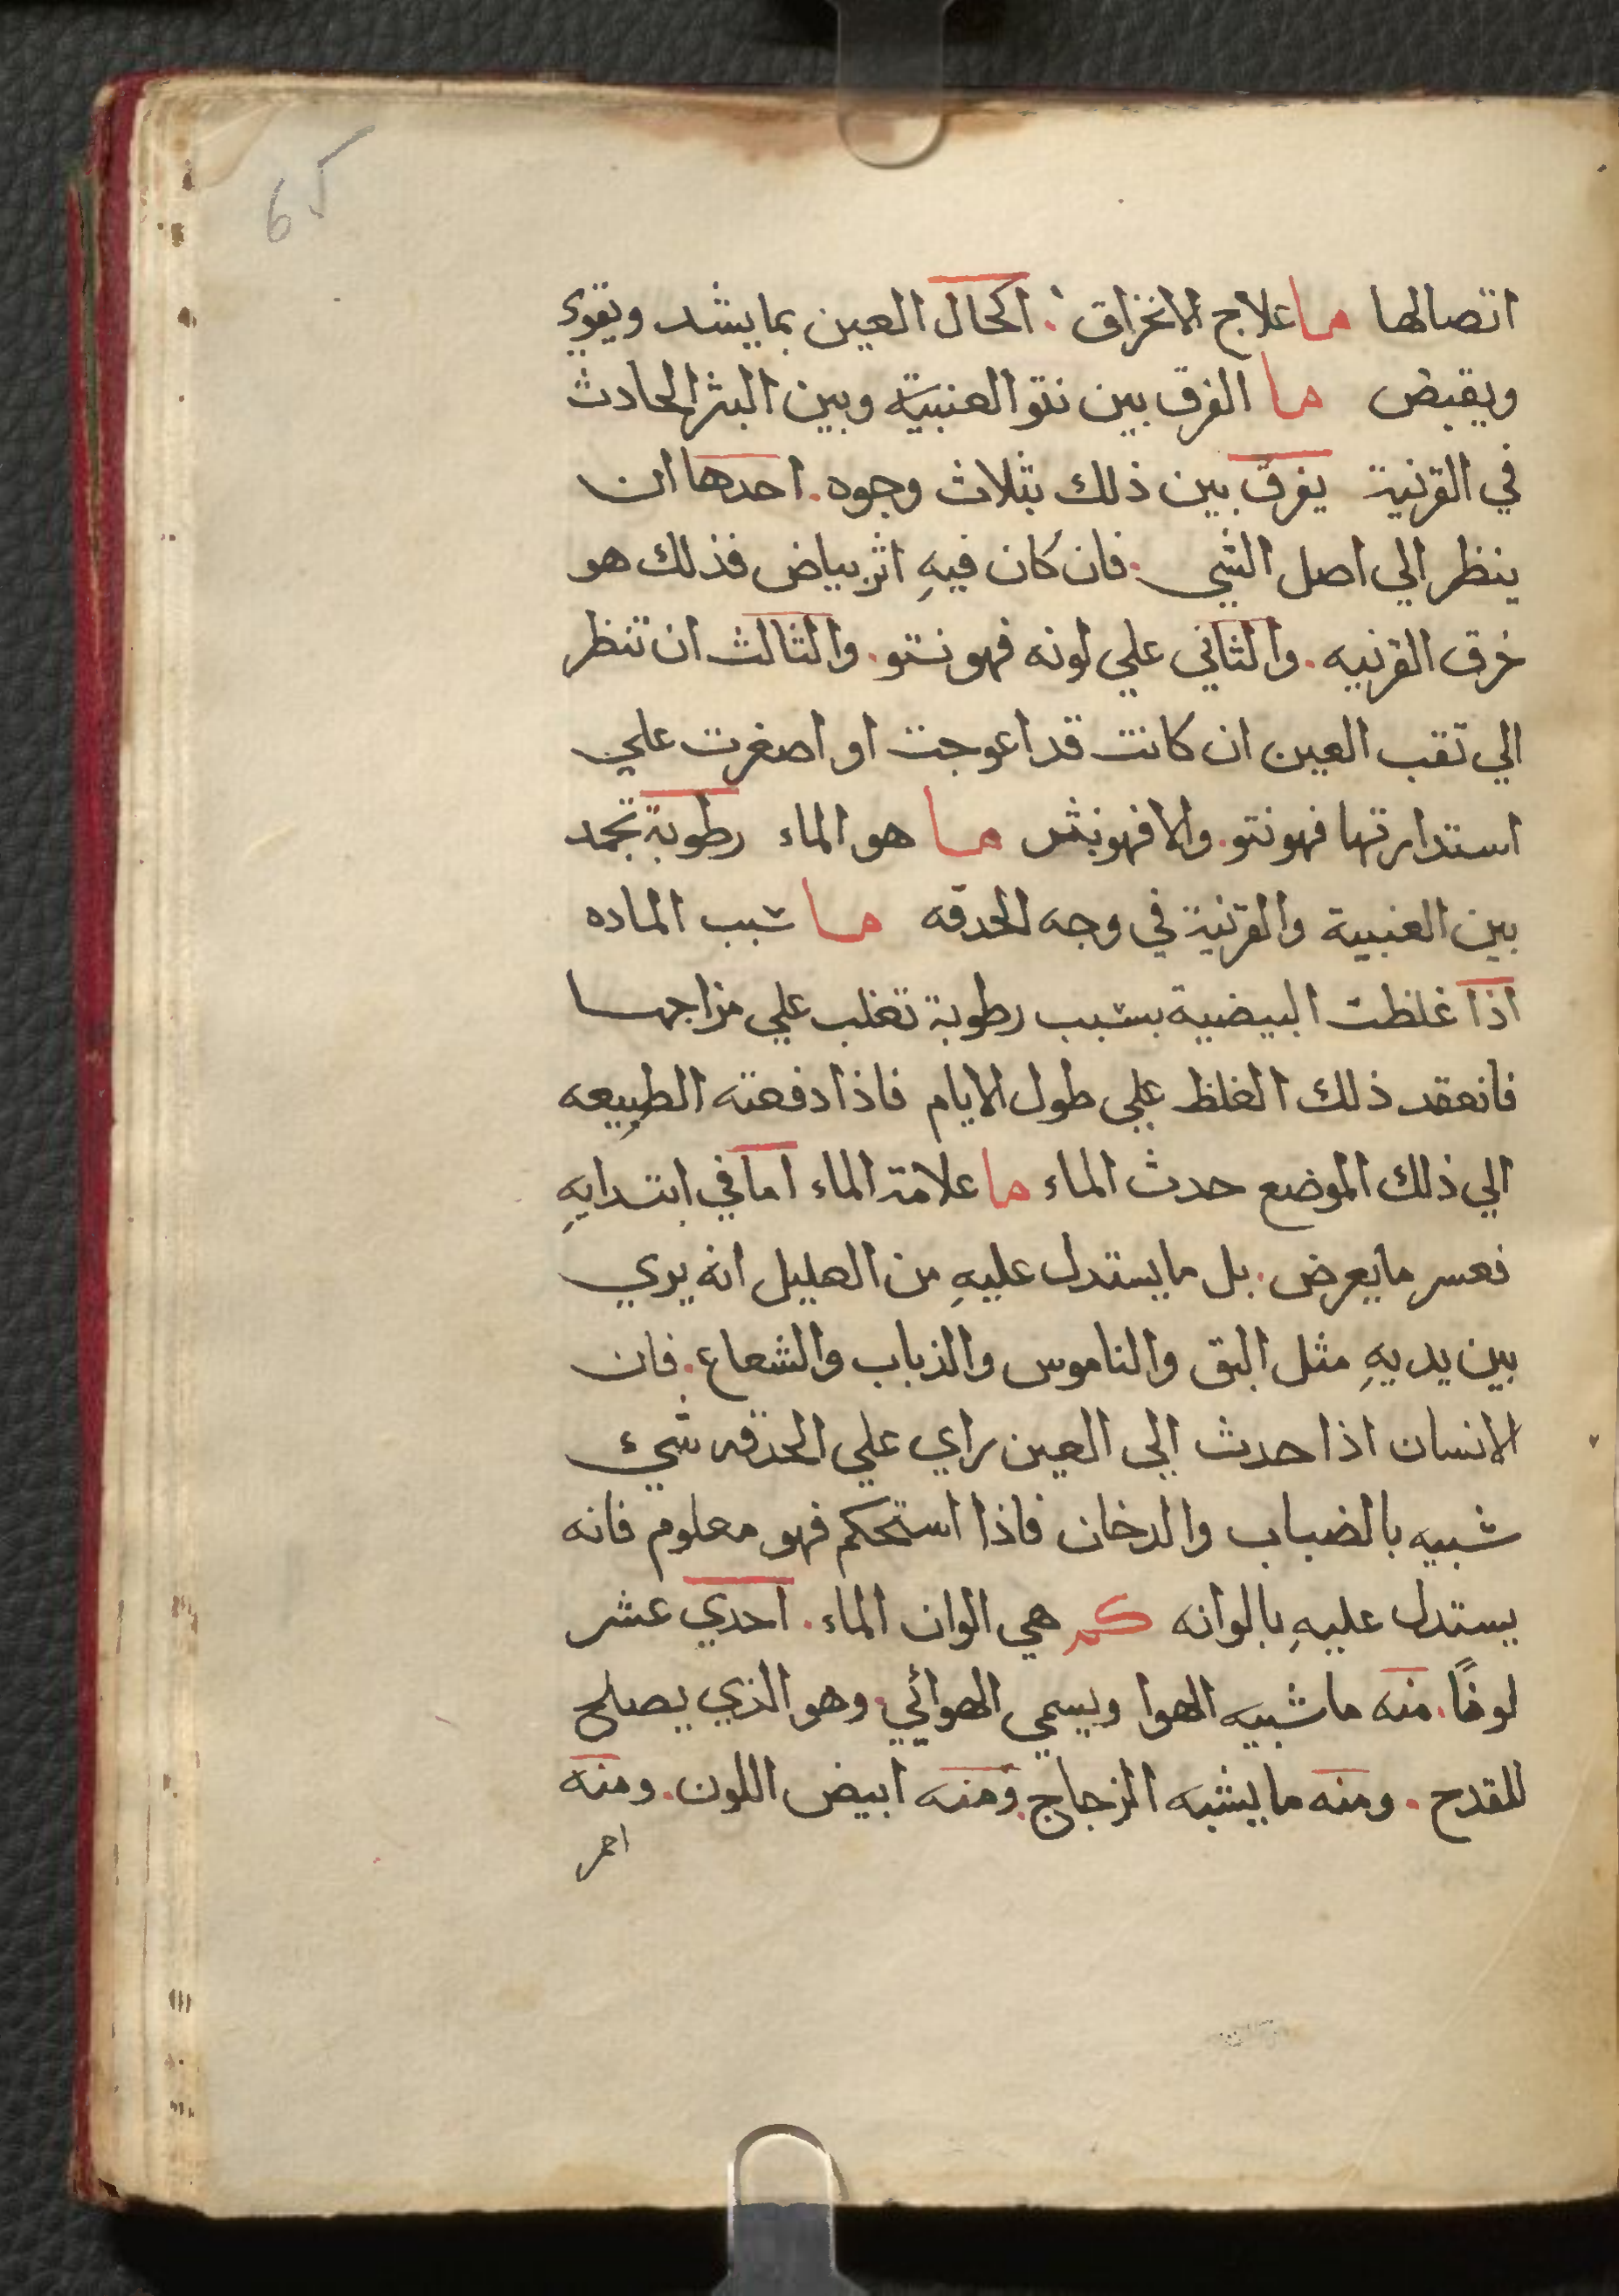 65
اتصالها ما علاج الانخراق . اكحال العين بما يشد ويقوي
ويقبض ما الفرق بين نتو العنبية وبين البثر الحادث
في القرنية يفرق بين ذلك بثلاث وجوه . احدها ان
ينظر الي اصل الشي . فان كان فيهِ اثر بياض فذلك هو
خرق القرنيه . والثاني علي لونه فهو نتو . والثالث ان تنظر
الي تقب العين ان كانت قد اعوجت او اصغرت علي
استدارتها فهو نتو . والا فهو بثر ما هو الماء رطوبة تجمد
بين العنبية والقرنية في وجه الحدقه ما سبب الماده
اذا غلظت البيضية بسبب رطوبة تغلب علي مزاجها
فانعقد ذلك الغلظ علي طول الايام فاذا دفعته الطبيعه
الي ذلك الموضع حدث الماء ما علامة الماء اما في ابتدايهِ
فعسر ما يعرض . بل ما يستدل عليهِ من العليل انه يري
بين يديهِ مثل البق والناموس والذباب والشعاع . فان
الانسان اذا حدث الي العين راي علي الحدقه شيء
شبيه بالضباب والدخان فاذا استحكم فهو معلوم فانه
يستدل عليهِ بالوانه كم هي الوان الماء . احدي عشر
لونًا . منه ما شبيه الهوا ويسمي الهوائي . وهو الذي يصلح
للقدح . ومنه ما يشبه الزجاج . ومنه ابيض اللون . ومنه
احمر